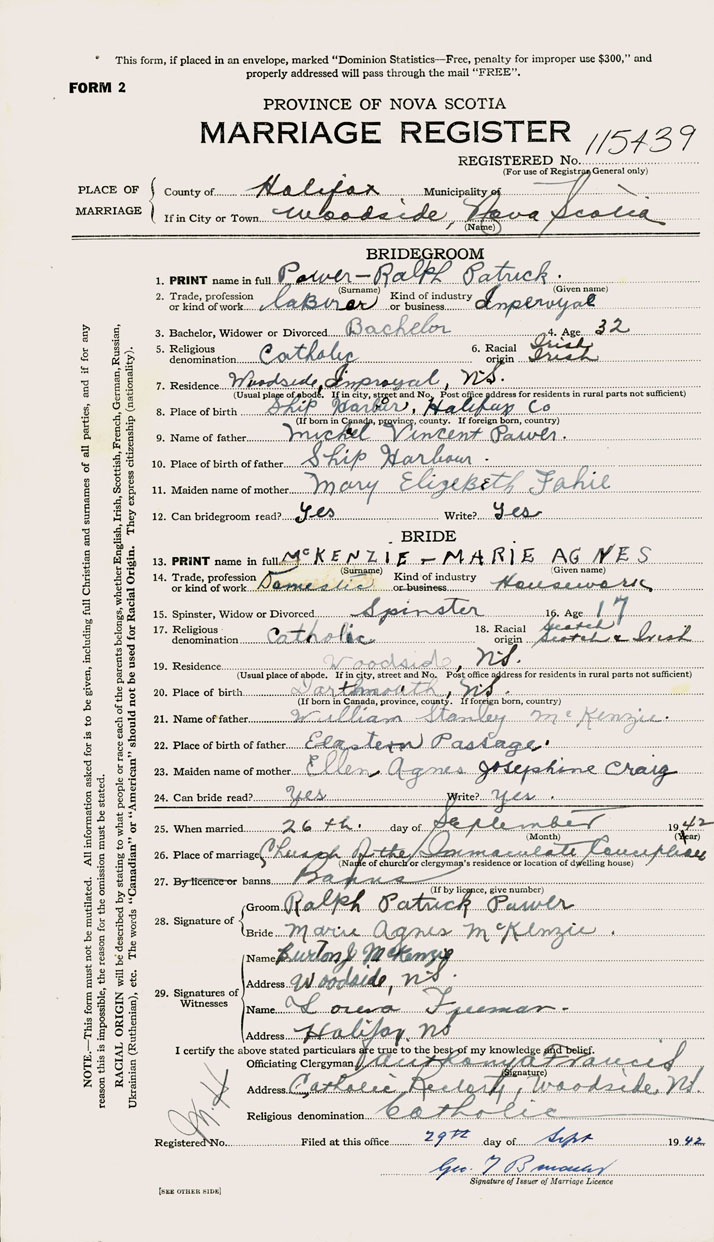 * This form, if placed in an envelope, marked "Dominion Statistics—Free, penalty for improper use $300," and
properly addressed will pass through the mail "FREE".
FORM 2
PROVINCE OF NOVA SCOTIA
MARRIAGE REGISTER
REGISTERED No. 115439
(For use of Registrar General only)
PLACE OF MARRIAGE
County of Halifax Municipality of
If in City or Town Woodside, Nova Scotia
(Name)
BRIDEGROOM
1. PRINT name in full Power - Ralph Patrick.
(Surname) (Given name)
2. Trade, profession or kind of work laborer Kind of industry or business Imperoyal
3. Bachelor, Widower or Divorced Bachelor 4. Age 32
5. Religious denomination Catholic 6. Racial origin Irish Irish
7. Residence Woodside, Improyal, N.S.
(Usual place of abode. If in city, street and No. Post office address for residents in rural parts not sufficient)
8. Place of birth Ship Harbor, Halifax Co
(If born in Canada, province, county. If foreign born, country)
9. Name of father Michel Vincent Power.
10. Place of birth of father Ship Harbour.
11. Maiden name of mother Mary Elizebeth Fahie
12. Can bridegroom read? Yes Write? Yes
BRIDE
13. PRINT name in full McKENZIE - MARIE AGNES
(Surname) (Given name)
14. Trade, profession or kind of work Domestic Kind of industry or business Housework
15. Spinster, Widow or Divorced Spinster 16. Age 17
17. Religious denomination Catholic 18. Racial origin Scotch Scotch & Irish
19. Residence Woodside, N.S.
(Usual place of abode. If in city, street and No. Post office address for residents in rural parts not sufficient)
20. Place of birth Dartmouth, N.S.
(If born in Canada, province, county. If foreign born, country)
21. Name of father William Stanley McKenzie.
22. Place of birth of father Eastern Passage.
23. Maiden name of mother Ellen Agnes Josephine Craig
24. Can bride read? Yes Write? Yes.
25. When married 26th. day of September 1942
(Month) (Year)
26. Place of marriage Church of the Immaculate Conception
(Name of church or clergyman's residence or location of dwelling house)
27. By licence or banns Banns
(If by licence, give number)
28. Signature of
Groom Ralph Patrick Power
Bride Marie Agnes McKenzie.
29. Signatures of Witnesses
Name Burton J McKenzie
Address Woodside, N.S.
Name Freeman.
Address Halifax, NS
I certify the above stated particulars are true to the best of my knowledge and belief.
Officiating Clergyman Anthony Francis
(Signature)
Address Catholic Rectory, Woodside, N.S.
Religious denomination Catholic
Registered No. Filed at this office 29th day of Sept 1942
Geo. T
Signature of Issuer of Marriage Licence
[SEE OTHER SIDE]
NOTE.—This form must not be mutilated. All information asked for is to be given, including full Christian and surnames of all parties, and if for any
reason this is impossible, the reason for the omission must be stated.
RACIAL ORIGIN will be described by stating to what people or race each of the parents belongs, whether English, Irish, Scottish, French, German, Russian,
Ukrainian (Ruthenian), etc. The words "Canadian" or "American" should not be used for Racial Origin. They express citizenship (nationality).